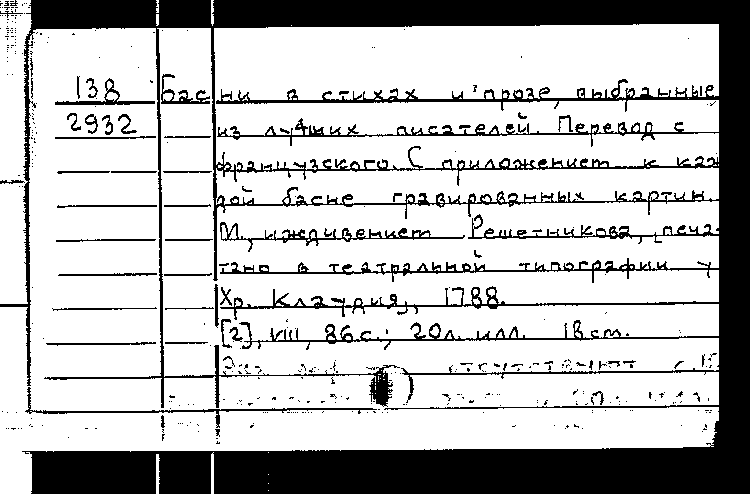 138 Басни в стихах и прозе, выбранные
2932 из лучших писателей. Перевод с
французского. С приложением к каж
дой басне гравированных картин.
М., иждивением Решетникова, печа-
тано в театральной типографии у
Хр. Клаудия, 1788.
[2], VIII, 86 с.; 20 л. илл. 18 см.
Экз. деф отсутствуют с.
и 20 л. илл.